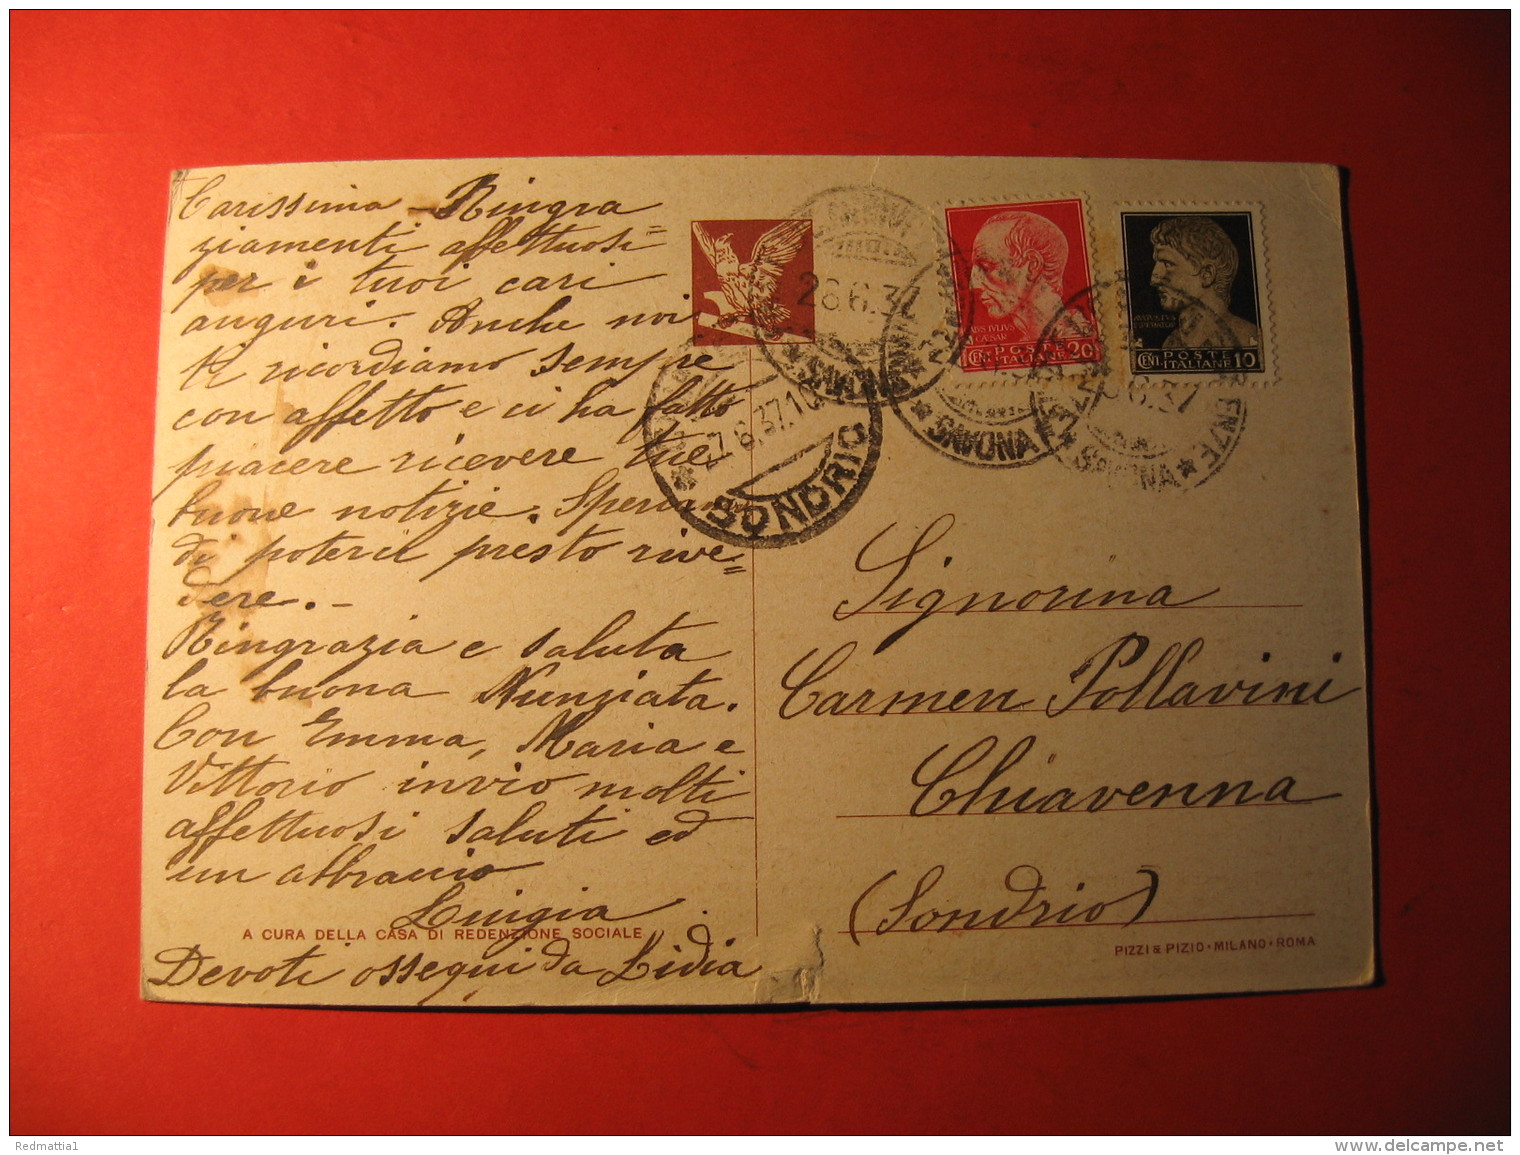 Carissima - Ringra
ziamenti affettuosi=
per i tuoi cari
auguri. Anche noi
ti ricordiamo sempre
con affetto e ci ha fatto
piacere ricevere tue
buone notizie.
di poterti presto rive=
dere. -
Ringrazia e saluta
la buona Nunziata.
Con Emma, Maria e
Vittorio invio molti
affettuosi saluti ed
un abbraccio
Luigia
A CURA DELLA CASA DI REDENZIONE SOCIALE
Devoti ossequi da Lidia
26.6.37
SAVONA
27.6.37.10
SONDRIO
CENT. POSTE ITALIANE 20
SAVONA
CENT. POSTE ITALIANE 10
6.37
SAVONA
Signorina
Carmen Pollavini
Chiavenna
(Sondrio)
PIZZI & PIZIO · MILANO · ROMA
Redmattia1
www.delcampe.net